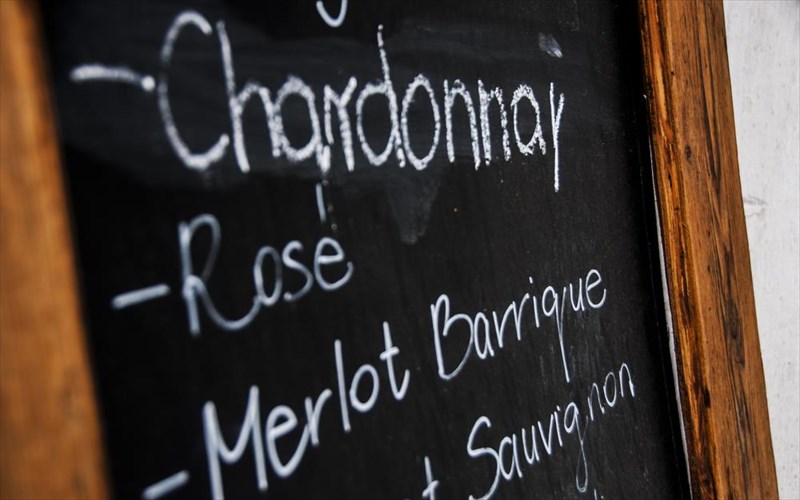 - Chardonnay
- Rosé
- Merlot Barrique
Sauvignon